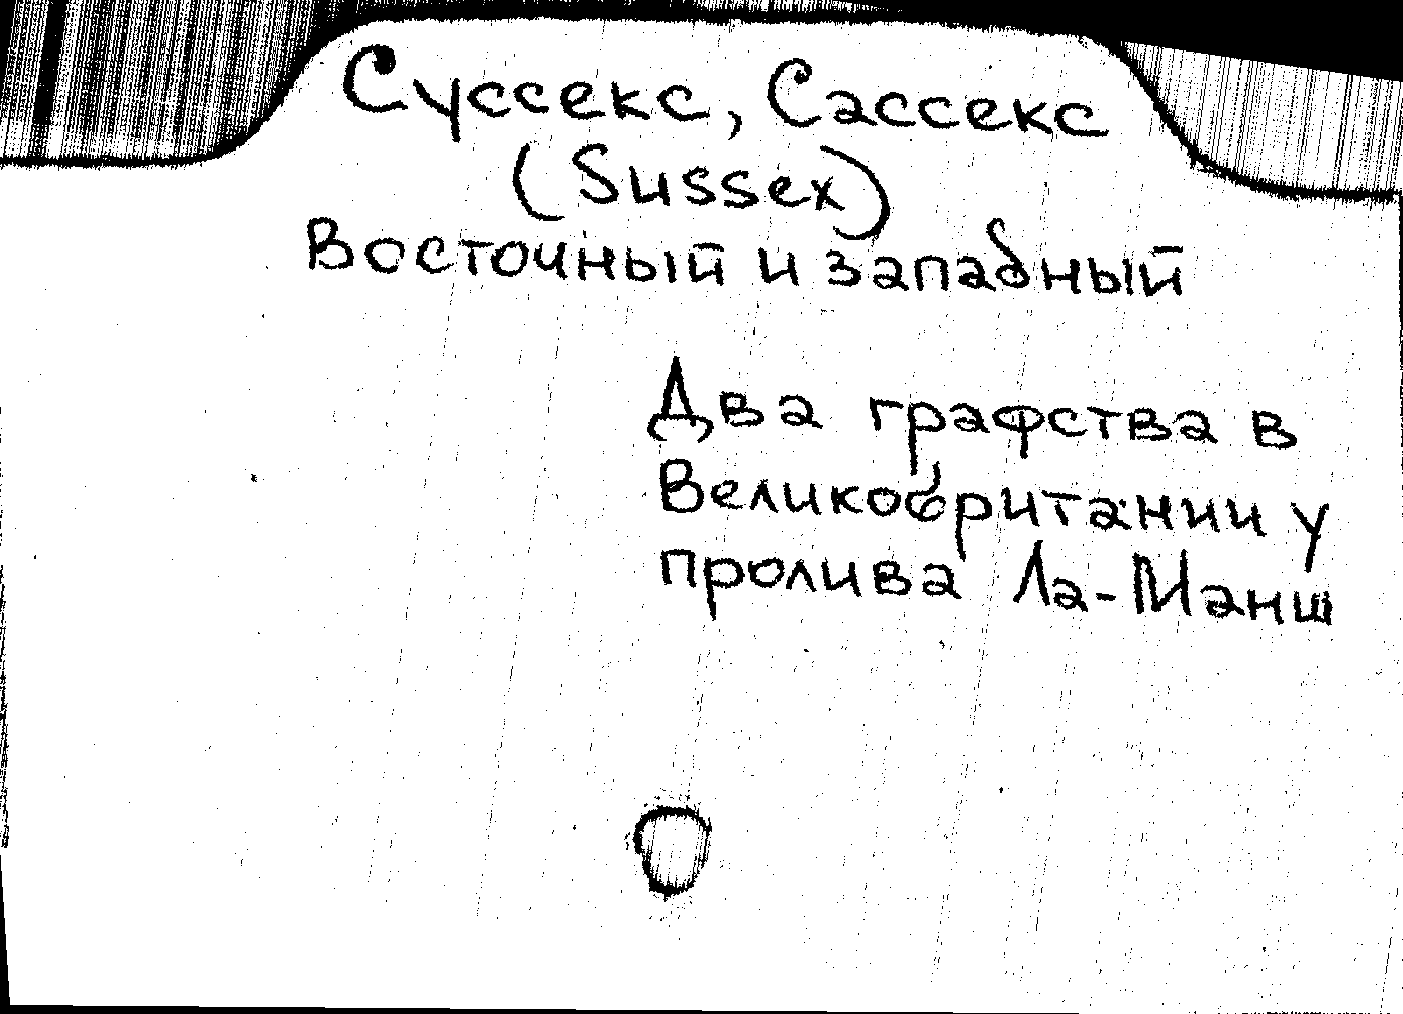 Суссекс, Сассекс
(Sussex)
Восточный и западный
Два графства в
Великобритании у
пролива Ла-Манш